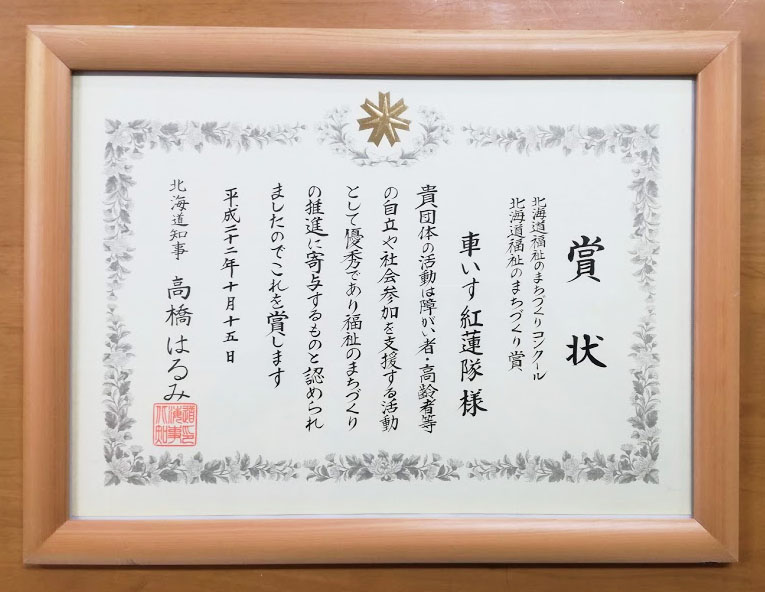 賞状
北海道福祉のまちづくりコンクール
北海道福祉のまちづくり賞
車いす紅蓮隊様
貴団体の活動は障がい者・高齢者等
の自立や社会参加を支援する活動
として優秀であり福祉のまちづくり
の推進に寄与するものと認められ
ましたのでこれを賞します
平成二十二年十月十五日
北海道知事 高橋はるみ